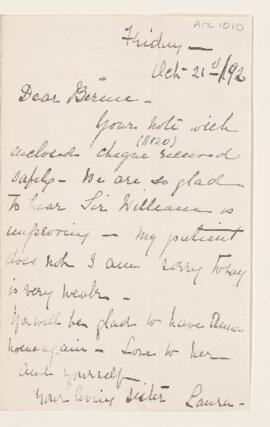 Acc 1010
Friday —
Oct- 21st/92
Dear Bernie -
Your note with
($120)
enclosed cheque received
safely - We are so glad
to hear Sir William is
improving - My patient
does not I am sorry to say
is very weak -
You will be glad to have
home again - Love to her
and yourself
Your loving sister Laura -